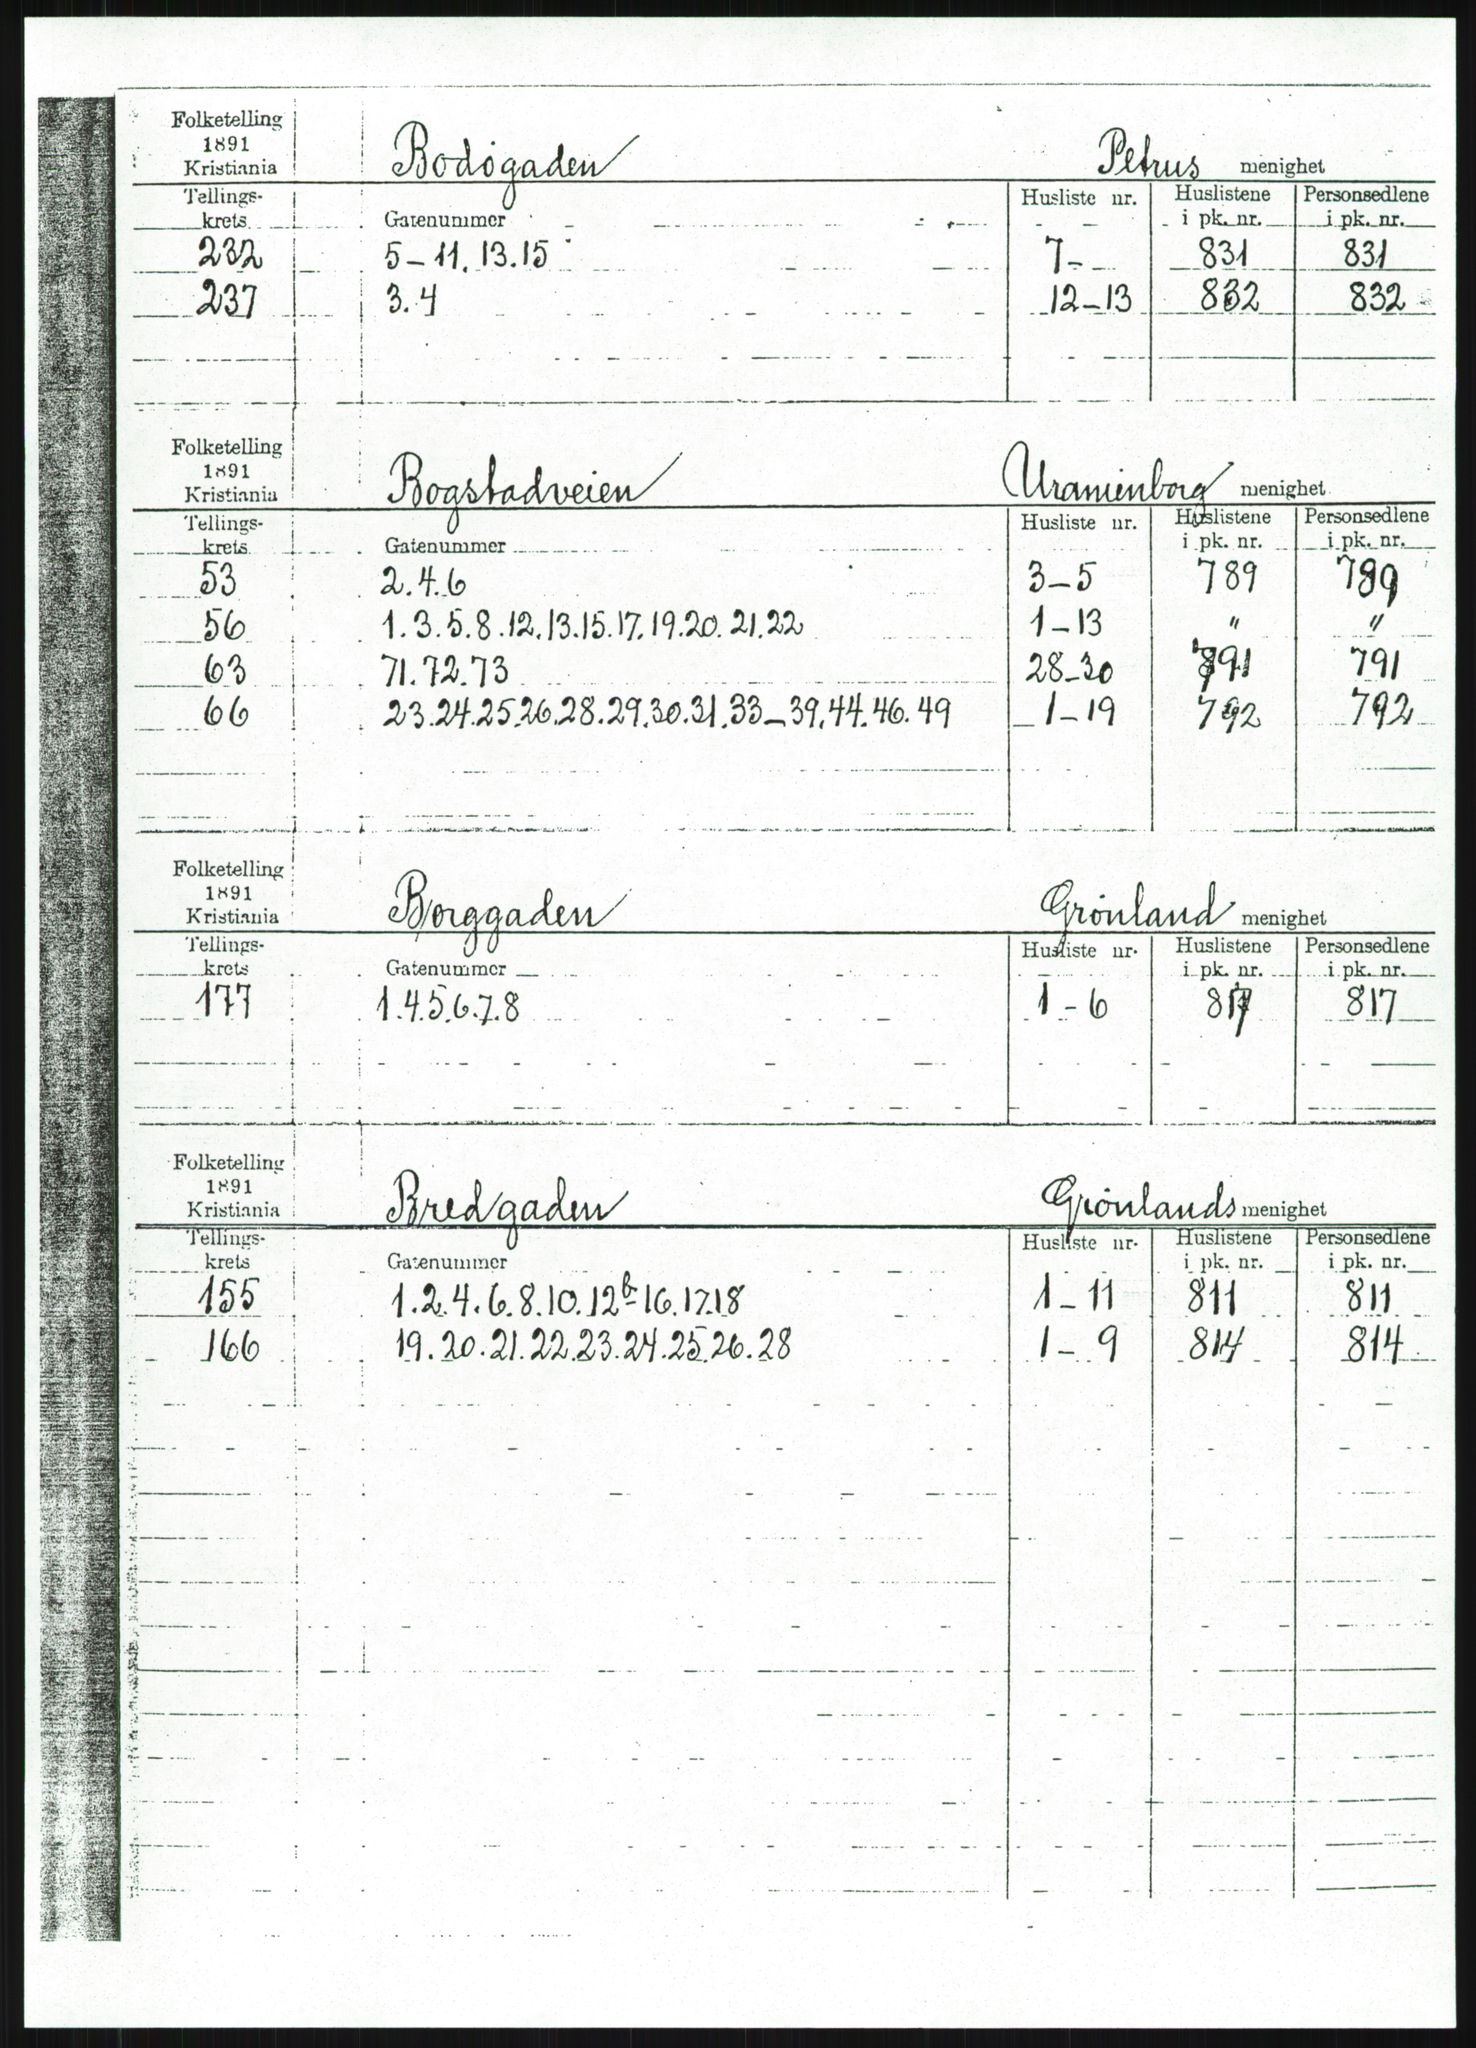 Folketelling
1891
Kristiania Bodøgaden Petrus menighet
Tellings- Husliste nr. Huslistene Personsedlene
krets Gatenummer i pk. nr. i pk. nr.
232 5-11. 13. 15 7- 831 831
237 3. 4 12-13 832 832
Folketelling
1891
Kristiania Bogstadveien Uranienborg menighet
Tellings- Husliste nr. Huslistene Personsedlene
krets Gatenummer i pk. nr. i pk. nr.
53 2. 4. 6 3-5 789 789
56 1. 3. 5. 8. 12. 13. 15. 17. 19. 20. 21. 22 1-13 " "
63 71. 72. 73 28-30 791 791
66 23. 24. 25. 26. 28. 29. 30. 31. 33-39. 44. 46. 49 1-19 792 792
Folketelling
1891
Kristiania Borggaden Grønland menighet
Tellings- Husliste nr. Huslistene Personsedlene
krets Gatenummer i pk. nr. i pk. nr.
177 1. 4. 5. 6. 7. 8 1-6 817 817
Folketelling
1891
Kristiania Bredgaden Grønlands menighet
Tellings- Husliste nr. Huslistene Personsedlene
krets Gatenummer i pk. nr. i pk. nr.
155 1. 2. 4. 6. 8. 10. 12b-16. 17. 18 1-11 811 811
166 19. 20. 21. 22. 23. 24. 25. 26. 28 1-9 814 814